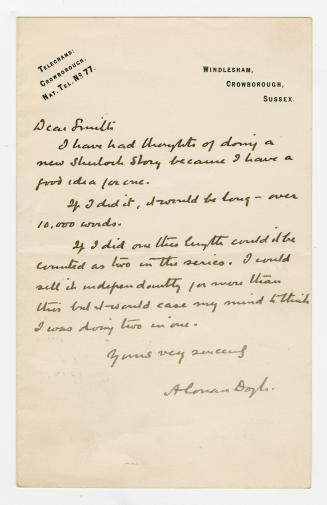 Telegrams:
Crowborough.
Nat. Tel. No 77.
Windlesham,
Crowborough,
Sussex.
Dear Smith
I have had thoughts of doing a
new Sherlock Story because I have a
good idea for one.
If I did it, it would be long - over
10,000 words.
If I did one this length could it be
counted as two in the series. I could
sell it independently for more than
this but it would ease my mind to think
I was doing two in one.
Yours very sincerely
A Conan Doyle.